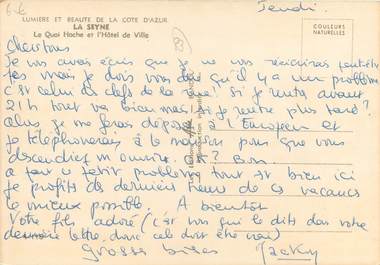 Jeudi.
LUMIERE ET BEAUTE DE LA COTE D'AZUR
LA SEYNE
Le Quai Hoche et l'Hôtel de Ville
COULEURS
NATURELLES
83
Chers tous
Je vous avais écris que je ne vous réécrirais peut-être
pas mais je dois vous dire qu'il y a un problème
c'est celui des clefs de la rue! si je rentre avant
21h tout va bien mais si je rentre plus tard?
alors je me ferais déposer à l'Européen et
je téléphonerais à la maison pour que vous
descendiez m'ouvrir. O.K? Bon.
à part ce petit problème tout est bien ici
je profite des dernières heures de ces vacances
le mieux possible. A bientôt
Votre fils adoré (c'est vous qui le dites dans votre
dernière lettre, donc cela doit être vrai)
grosses bises Jacky